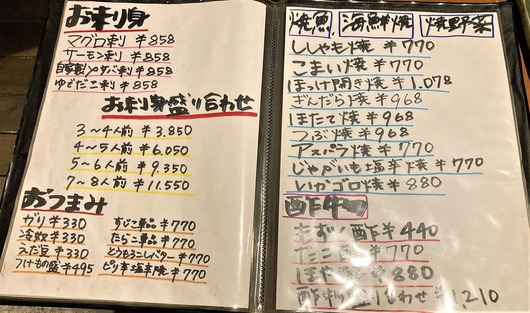 お刺身
マグロ刺 ¥858
サーモン刺 ¥858
自家製〆サバ刺 ¥858
ゆでだこ刺 ¥858
お刺身盛り合わせ
3〜4人前 ¥3,850
4〜5人前 ¥6,050
5〜6人前 ¥9,350
7〜8人前 ¥11,550
おつまみ
ガリ ¥330
冷奴 ¥330
えだ豆 ¥330
つけもの盛 ¥495
すじこ単品 ¥770
たらこ単品 ¥770
とうもろこしバター ¥770
ピリ辛塩辛焼 ¥770
焼魚 海鮮焼 焼野菜
ししゃも焼 ¥770
こまい焼 ¥770
ほっけ開き焼 ¥1,078
ぎんだら焼 ¥968
ほたて焼 ¥968
つぶ焼 ¥968
アスパラ焼 ¥770
じゃがいも塩辛焼 ¥770
いかゴロ焼 ¥880
酢物
もずく酢 ¥440
たこ酢 ¥770
ほや酢 ¥880
酢物盛り合わせ ¥1,210